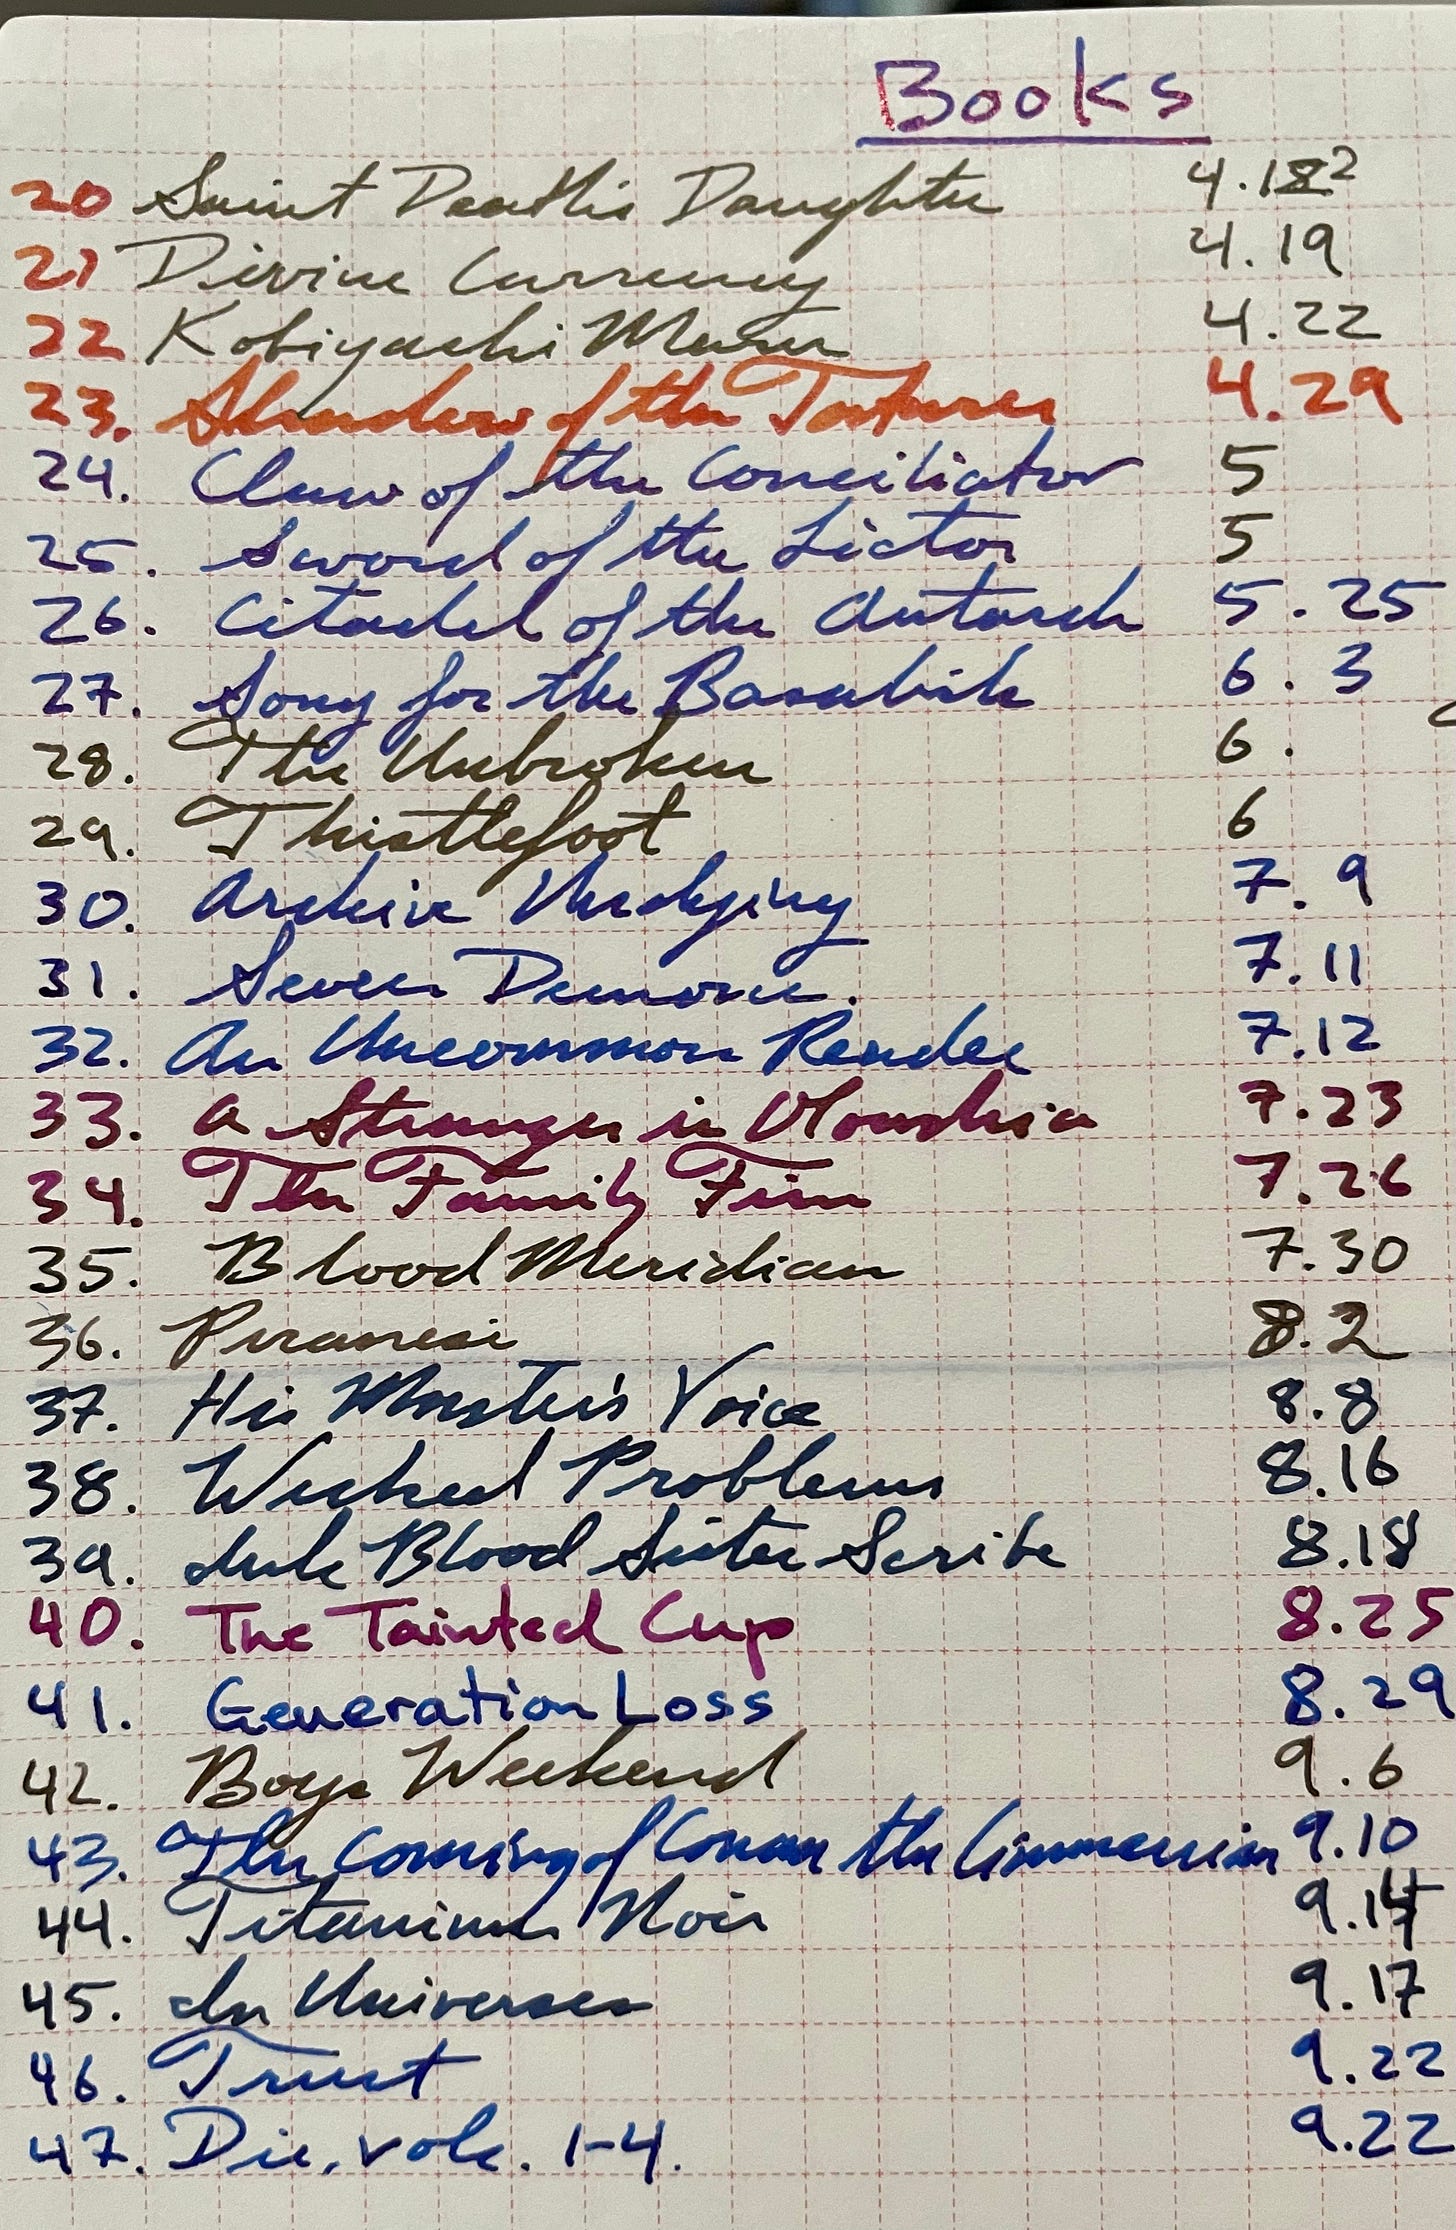 Books
20 Saint Death's Daughter 4.12
21 Divine Currency 4.19
22 Kobiyashi Maru 4.22
23. Shadow of the Torturer 4.29
24. Claw of the Conciliator 5
25. Sword of the Lictor 5
26. Citadel of the Autarch 5.25
27. Song for the Basilisk 6.3
28. The Unbroken 6.
29. Thistlefoot 6
30. Archive Undying 7.9
31. Seven Demons. 7.11
32. An Uncommon Reader 7.12
33. A Stranger in Olondria 7.23
34. The Family Firm 7.26
35. Blood Meridian 7.30
36. Piranesi 8.2
37. His Master's Voice 8.8
38. Wicked Problems 8.16
39. Ink Blood Sister Scribe 8.18
40. The Tainted Cup 8.25
41. Generation Loss 8.29
42. Boys Weekend 9.6
43. The Coming of Conan the Cimmerian 9.10
44. Titanium Noir 9.14
45. In Universes 9.17
46. Trust 9.22
47. Die, vols. 1-4. 9.22